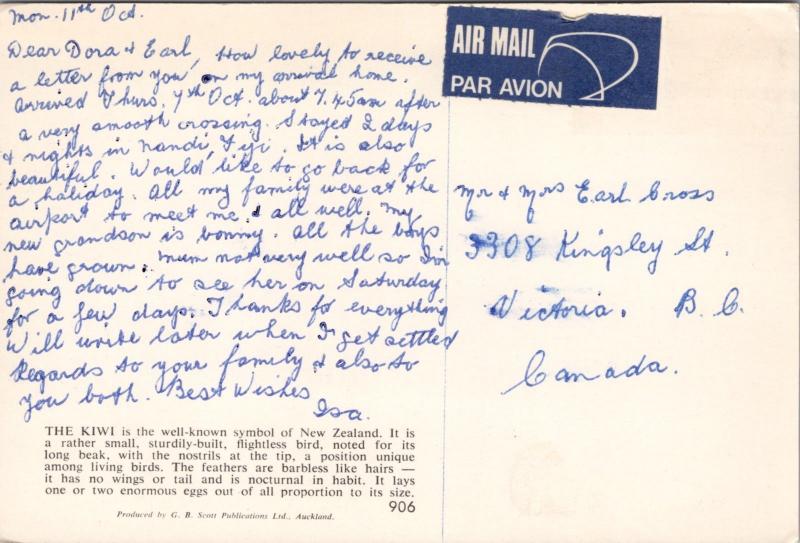 Mon. 11th Oct.
Dear Dora & Earl, How lovely to receive
a letter from you on my arrival home.
Arrived Thurs. 7th Oct. about 7.45am after
a very smooth crossing. Stayed 2 days
& nights in Nandi, Fiji. It is also
beautiful. Would like to go back for
a holiday. All my family were at the
airport to meet me & all well. My
new grandson is bonny. All the boys
have grown. Mum not very well so I'm
going down to see her on Saturday
for a few days. Thanks for everything
Will write later when I get settled
Regards to your family & also to
you both. Best Wishes
Isa.
THE KIWI is the well-known symbol of New Zealand. It is
a rather small, sturdily-built, flightless bird, noted for its
long beak, with the nostrils at the tip, a position unique
among living birds. The feathers are barbless like hairs —
it has no wings or tail and is nocturnal in habit. It lays
one or two enormous eggs out of all proportion to its size.
906
Produced by G. B. Scott Publications Ltd., Auckland.
AIR MAIL
PAR AVION
Mr & Mrs Earl Cross
3308 Kingsley St.
Victoria. B.C.
Canada.